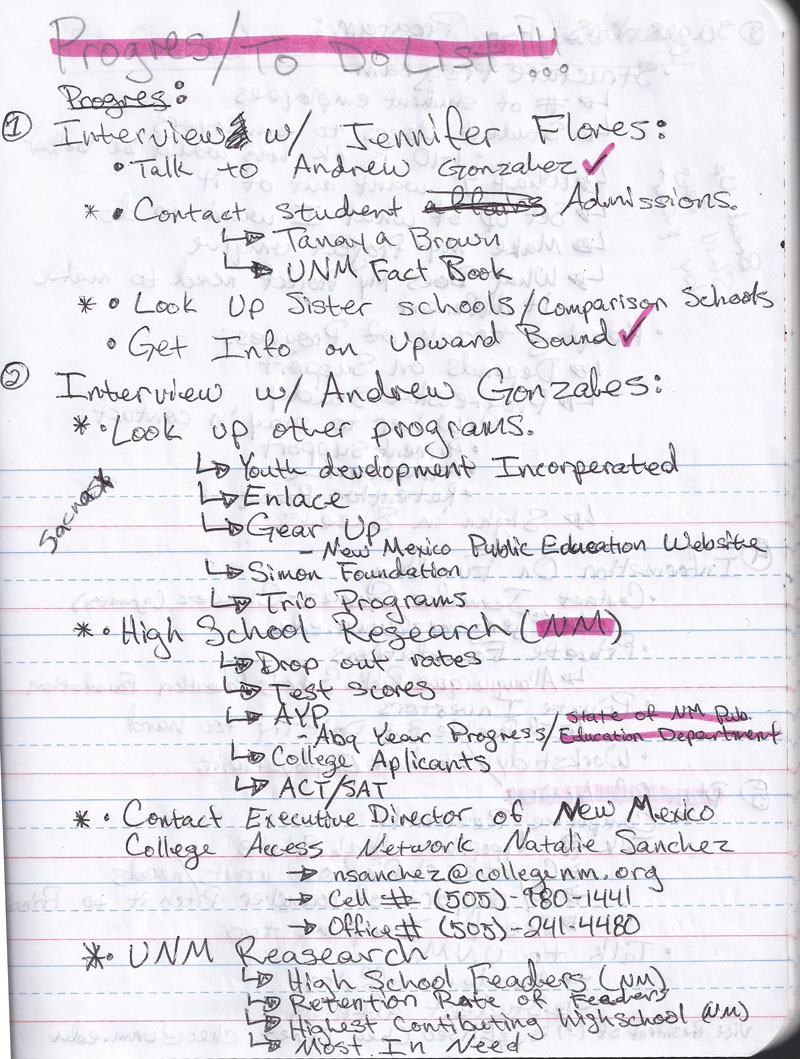 Progres/To Do List!!!...
Progres:
① Interview w/ Jennifer Flores:
• Talk to Andrew Gonzalez ✓
* • Contact student Admissions.
↳ Tanaya Brown
↳ UNM Fact Book
* • Look Up Sister schools/Comparison Schools
• Get Info on Upward Bound ✓
② Interview w/ Andrew Gonzales:
* • Look up other programs.
↳ Youth development Incorperated
↳ Enlace
↳ Gear Up
- New Mexico Public Education Website
↳ Simon Foundation
↳ Trio Programs
* • High School Research (NM)
↳ Drop out rates
↳ Test scores
↳ AYP
- Abq Year Progress/State of NM Pub. Education Department
↳ College Aplicants
↳ ACT/SAT
* • Contact Executive Director of New Mexico
College Access Network Natalie Sanchez
→ nsanchez@collegenm.org
→ Cell # (505)-980-1441
→ Office # (505)-241-4480
* • UNM Reasearch
↳ High School Feaders (NM)
↳ Retention Rate of Feeders
↳ Highest Contibuting Highschool (NM)
↳ Most In Need